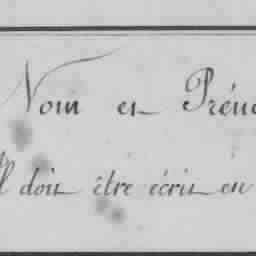 Nom et Préno
Il doit être écrit en